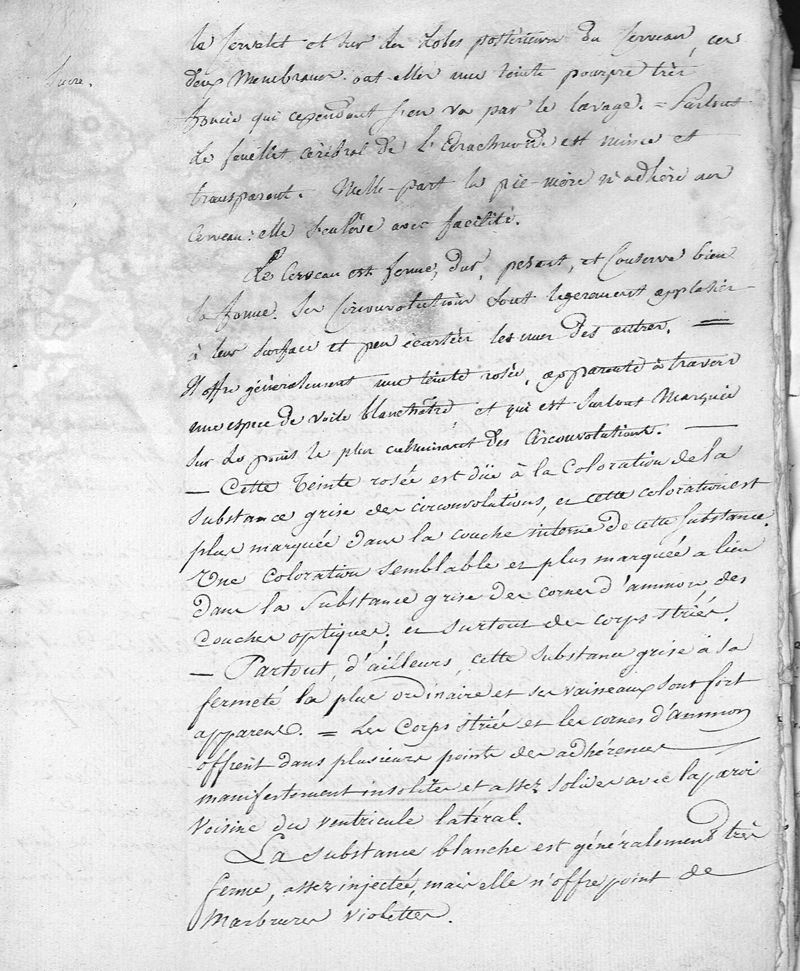 le Cervelet et sur des Lobes postérieurs du Cerveau, ces
deux Membranes ont elles une teinte pourpre très
foncée qui cependant s'en va par le lavage. = Partout
Le feuillet cérébral de L'Arachnoïde est mince et
transparent. Nulle-part la pie-mère n'adhère au
Cerveau: elle s'enlève avec facilité.
Le Cerveau est ferme, dur, pesant, et Conserve bien
Sa forme. Ses Circonvolutions sont légèrement applaties
à leur surface et peu écartées les unes des autres. =
Il offre généralement une teinte rosée, apparente à travers
une espece de voile blanchâtre et qui est surtout Marquée
sur les points le plus culminant des Circonvolutions. —
— Cette Teinte rosée est düe à la Coloration de la
substance grise des circonvolutions, et cette coloration est
plus marquée dans la couche interne de cette substance.
Une coloration semblable et plus marquée a lieu
dans la substance grise des cornes d'ammon des
Couches optiques, et surtout des corps striés.
— Partout, d'ailleurs, cette substance grise à sa
fermeté la plus ordinaire et ses vaisseaux sont fort
apparens. = Les Corps striés et les cornes d'ammon
offrent dans plusieurs points des adhérences
manifestement insolites et assez solides avec la paroi
Voisine du ventricule latéral.
La substance blanche est généralement très
ferme, assez injectée, mais elle n'offre point de
Marbrures violettes.